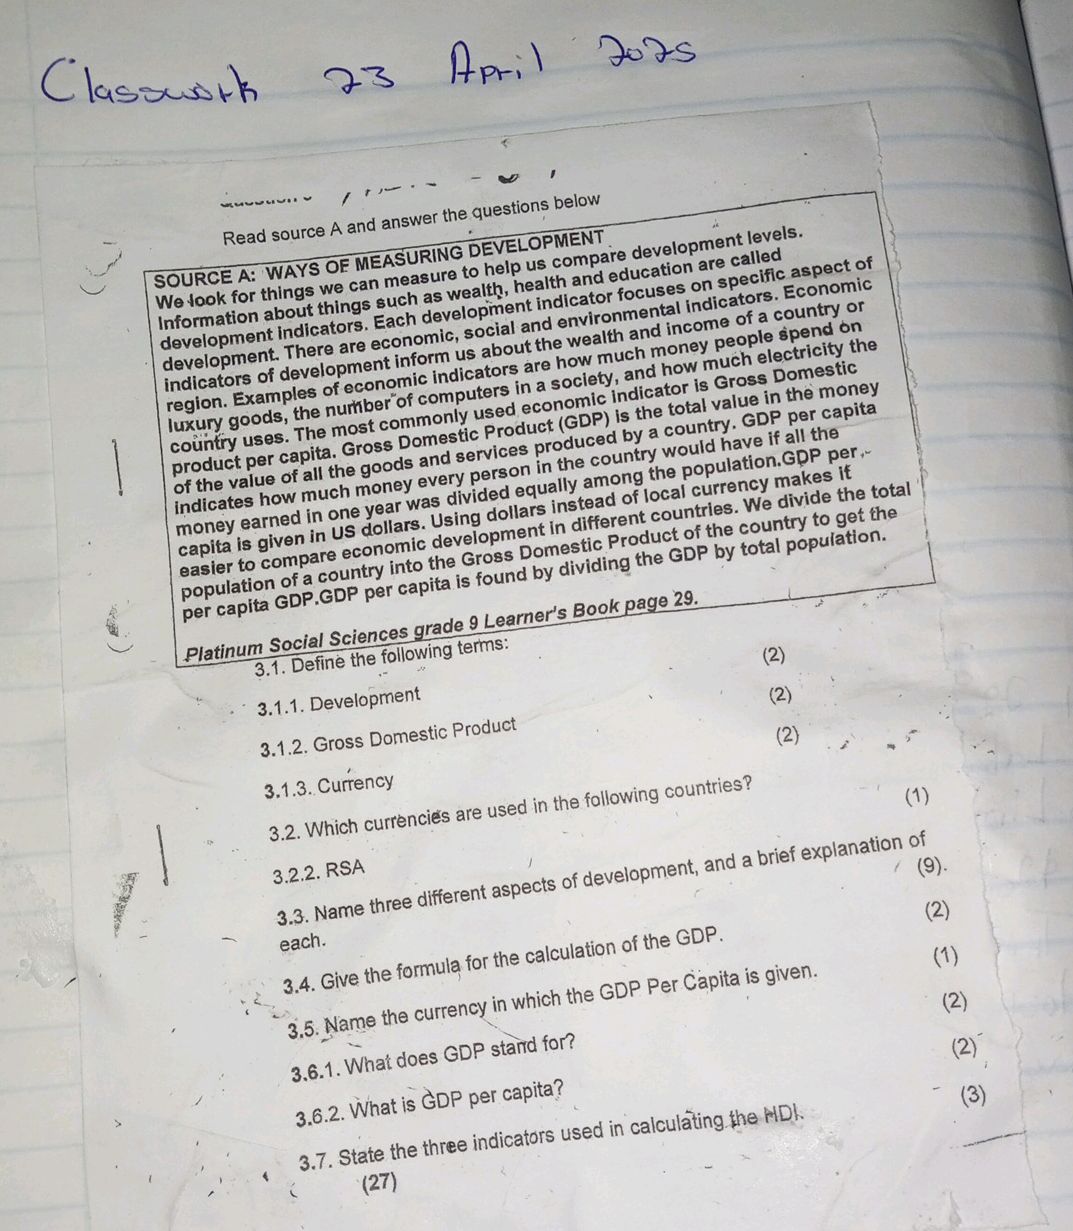 Classwork 23 April 2025
Read source A and answer the questions below
SOURCE A: WAYS OF MEASURING DEVELOPMENT
We look for things we can measure to help us compare development levels.
Information about things such as wealth, health and education are called
development indicators. Each development indicator focuses on specific aspect of
development. There are economic, social and environmental indicators. Economic
indicators of development inform us about the wealth and income of a country or
region. Examples of economic indicators are how much money people spend on
luxury goods, the number of computers in a society, and how much electricity the
country uses. The most commonly used economic indicator is Gross Domestic
product per capita. Gross Domestic Product (GDP) is the total value in the money
of the value of all the goods and services produced by a country. GDP per capita
indicates how much money every person in the country would have if all the
money earned in one year was divided equally among the population.GDP per
capita is given in US dollars. Using dollars instead of local currency makes it
easier to compare economic development in different countries. We divide the total
population of a country into the Gross Domestic Product of the country to get the
per capita GDP.GDP per capita is found by dividing the GDP by total population.
Platinum Social Sciences grade 9 Learner's Book page 29.
3.1. Define the following terms:
3.1.1. Development (2)
3.1.2. Gross Domestic Product (2)
3.1.3. Currency (2)
3.2. Which currencies are used in the following countries?
3.2.2. RSA (1)
3.3. Name three different aspects of development, and a brief explanation of
each. (9).
3.4. Give the formula for the calculation of the GDP. (2)
3.5. Name the currency in which the GDP Per Capita is given. (1)
3.6.1. What does GDP stand for? (2)
3.6.2. What is GDP per capita? (2)
3.7. State the three indicators used in calculating the HDI. (3)
(27)